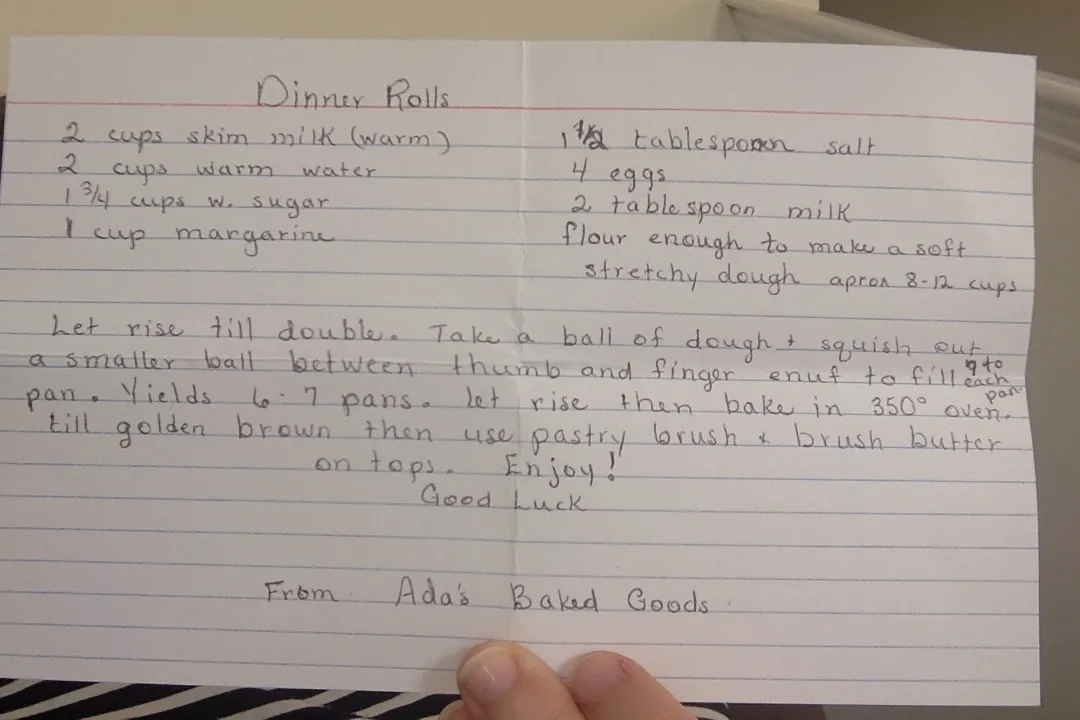 Dinner Rolls
2 cups skim milk (warm)
2 cups warm water
1 3/4 cups w. sugar
1 cup margarine
1 1/2 tablespoon salt
4 eggs
2 tablespoon milk
flour enough to make a soft
stretchy dough aprox 8-12 cups
Let rise till double. Take a ball of dough + squish out
a smaller ball between thumb and finger enuf to fill each
9 to
pan
pan. Yields 6-7 pans. Let rise then bake in 350° oven.
till golden brown then use pastry brush & brush butter
on tops. Enjoy!
Good Luck
From Ada's Baked Goods